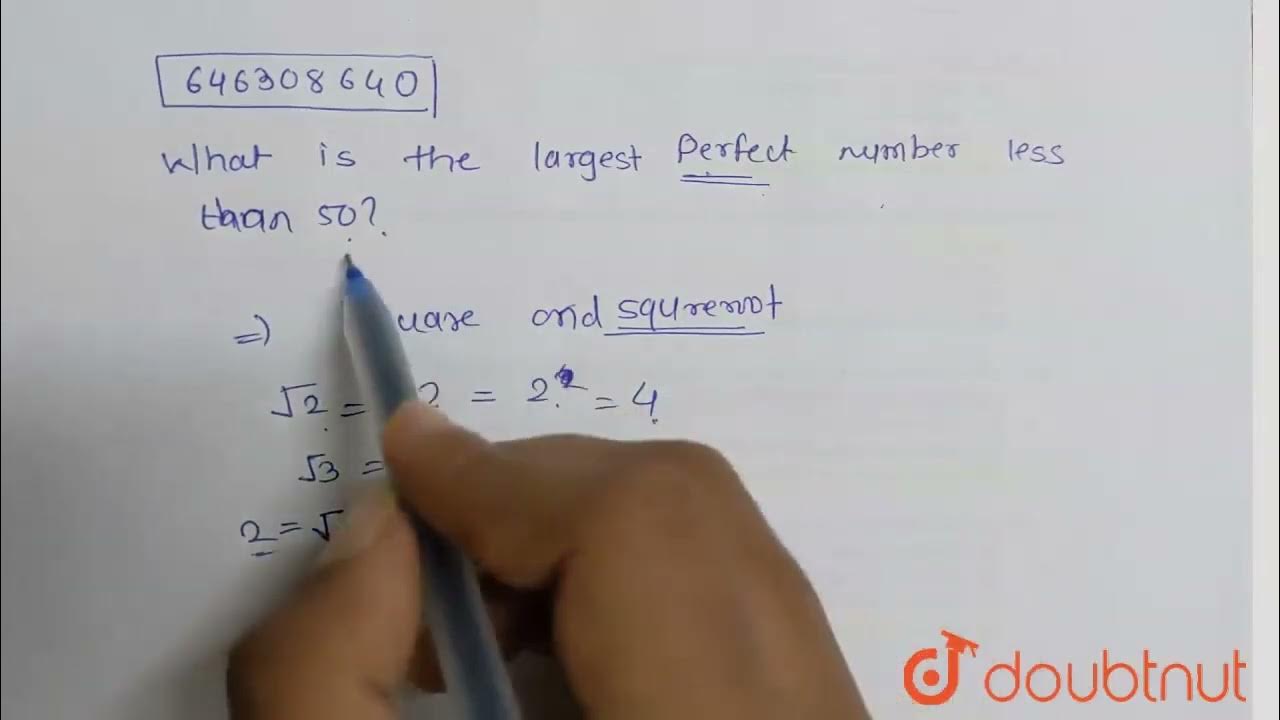 646308640
What is the largest Perfect number less
than 50?
=) and squreroot
√2 = ? = 2² = 4
√3 =
2 = √
doubtnut